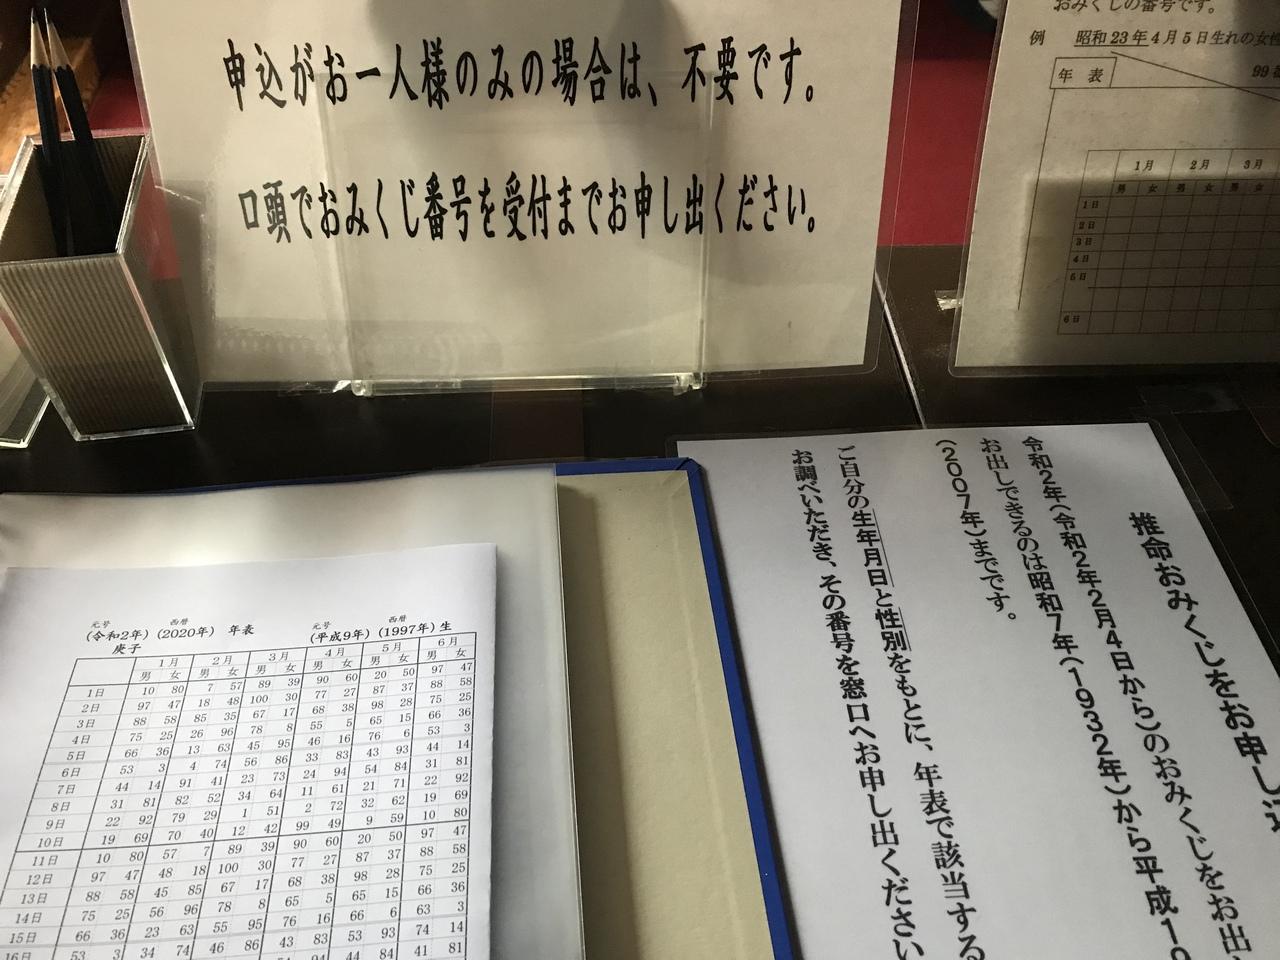 申込がお一人様のみの場合は、不要です。
口頭でおみくじ番号を受付までお申し出ください。
おみくじの番号です。
例 昭和23年4月5日生れの女性
年表
99
1月 2月 3月
男 女 男 女 男 女
1日
2日
3日
4日
5日
6日
推命おみくじをお申し込
令和2年(令和2年2月4日から)のおみくじをお出
お出しできるのは昭和7年(1932年)から平成19
(2007年)までです。
ご自分の生年月日と性別をもとに、年表で該当する
お調べいただき、その番号を窓口へお申し出ください
元号 西暦 元号 西暦
(令和2年) (2020年) 年表 (平成9年) (1997年) 生
庚子
1月 2月 3月 4月 5月 6月
男 女 男 女 男 女 男 女 男 女 男 女
1日 10 80 7 57 89 39 90 60 20 50 97 47
2日 97 47 18 48 100 30 77 27 87 37 88 58
3日 88 58 85 35 67 17 68 38 98 28 75 25
4日 75 25 26 96 78 8 55 5 65 15 66 36
5日 66 36 13 63 45 95 46 16 76 6 53 3
6日 53 3 4 74 56 86 33 83 43 93 44 14
7日 44 14 91 41 23 73 24 94 54 84 31 81
8日 31 81 82 52 34 64 11 61 21 71 22 92
9日 22 92 79 29 1 51 2 72 32 62 19 69
10日 19 69 70 40 12 42 99 49 9 59 10 80
11日 10 80 57 7 89 39 90 60 20 50 97 47
12日 97 47 48 18 100 30 77 27 87 37 88 58
13日 88 58 45 85 67 17 68 38 98 28 75 25
14日 75 25 56 96 78 8 65 5 65 15 66 36
15日 66 36 23 63 55 95 76 16 66 6 63 3
16日 53 3 34 74 46 86 43 83 53 93 74 14
54 94 84 41 81